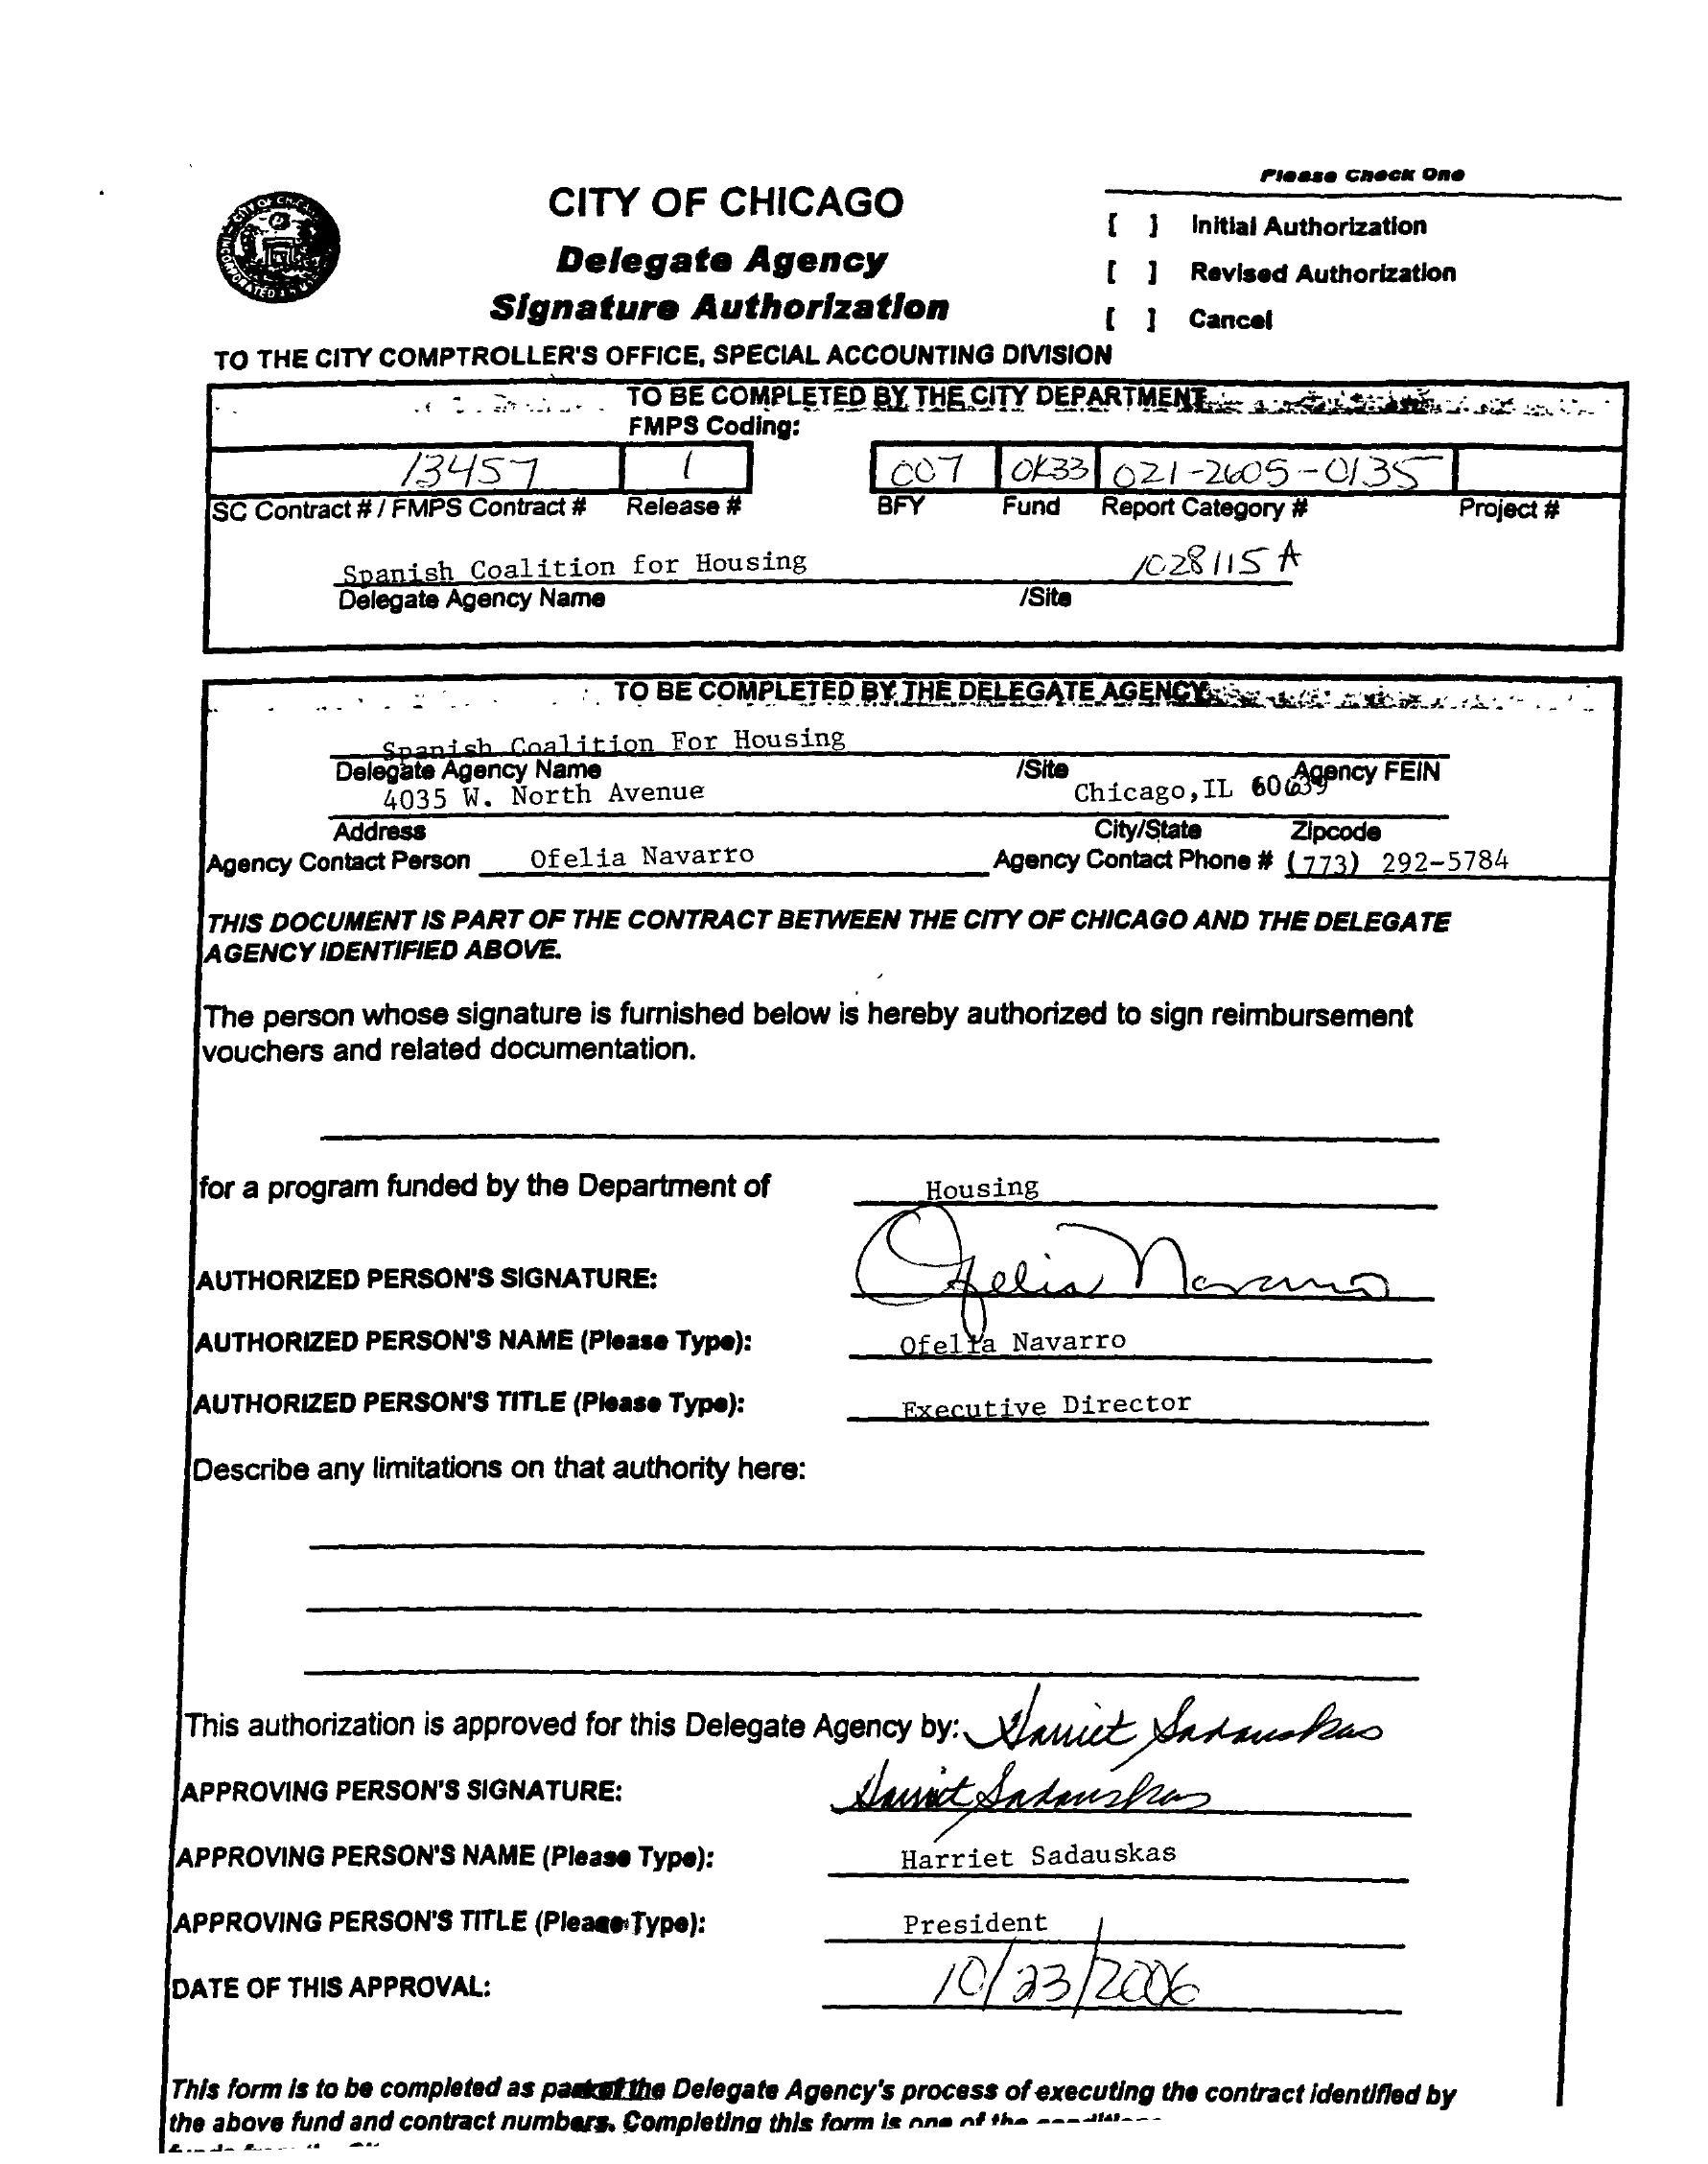 Please Check One
CITY OF CHICAGO
[ ] Initial Authorization
Delegate Agency
[ ] Revised Authorization
Signature Authorization
[ ] Cancel
TO THE CITY COMPTROLLER'S OFFICE, SPECIAL ACCOUNTING DIVISION
TO BE COMPLETED BY THE CITY DEPARTMENT
FMPS Coding:
13457 1 007 0K33 021-2605-0135
SC Contract # / FMPS Contract # Release # BFY Fund Report Category # Project #
Spanish Coalition for Housing 1028115A
Delegate Agency Name /Site
TO BE COMPLETED BY THE DELEGATE AGENCY
Spanish Coalition For Housing
Delegate Agency Name /Site Agency FEIN
4035 W. North Avenue Chicago,IL 60639
Address City/State Zipcode
Agency Contact Person Ofelia Navarro Agency Contact Phone # (773) 292-5784
THIS DOCUMENT IS PART OF THE CONTRACT BETWEEN THE CITY OF CHICAGO AND THE DELEGATE
AGENCY IDENTIFIED ABOVE.
The person whose signature is furnished below is hereby authorized to sign reimbursement
vouchers and related documentation.
for a program funded by the Department of Housing
AUTHORIZED PERSON'S SIGNATURE: Ofelia Navarro
AUTHORIZED PERSON'S NAME (Please Type): Ofelia Navarro
AUTHORIZED PERSON'S TITLE (Please Type): Executive Director
Describe any limitations on that authority here:
This authorization is approved for this Delegate Agency by: Harriet Sadauskas
APPROVING PERSON'S SIGNATURE: Harriet Sadauskas
APPROVING PERSON'S NAME (Please Type): Harriet Sadauskas
APPROVING PERSON'S TITLE (Please Type): President
DATE OF THIS APPROVAL: 10/23/2006
This form is to be completed as part of the Delegate Agency's process of executing the contract identified by
the above fund and contract numbers. Completing this form is one of the